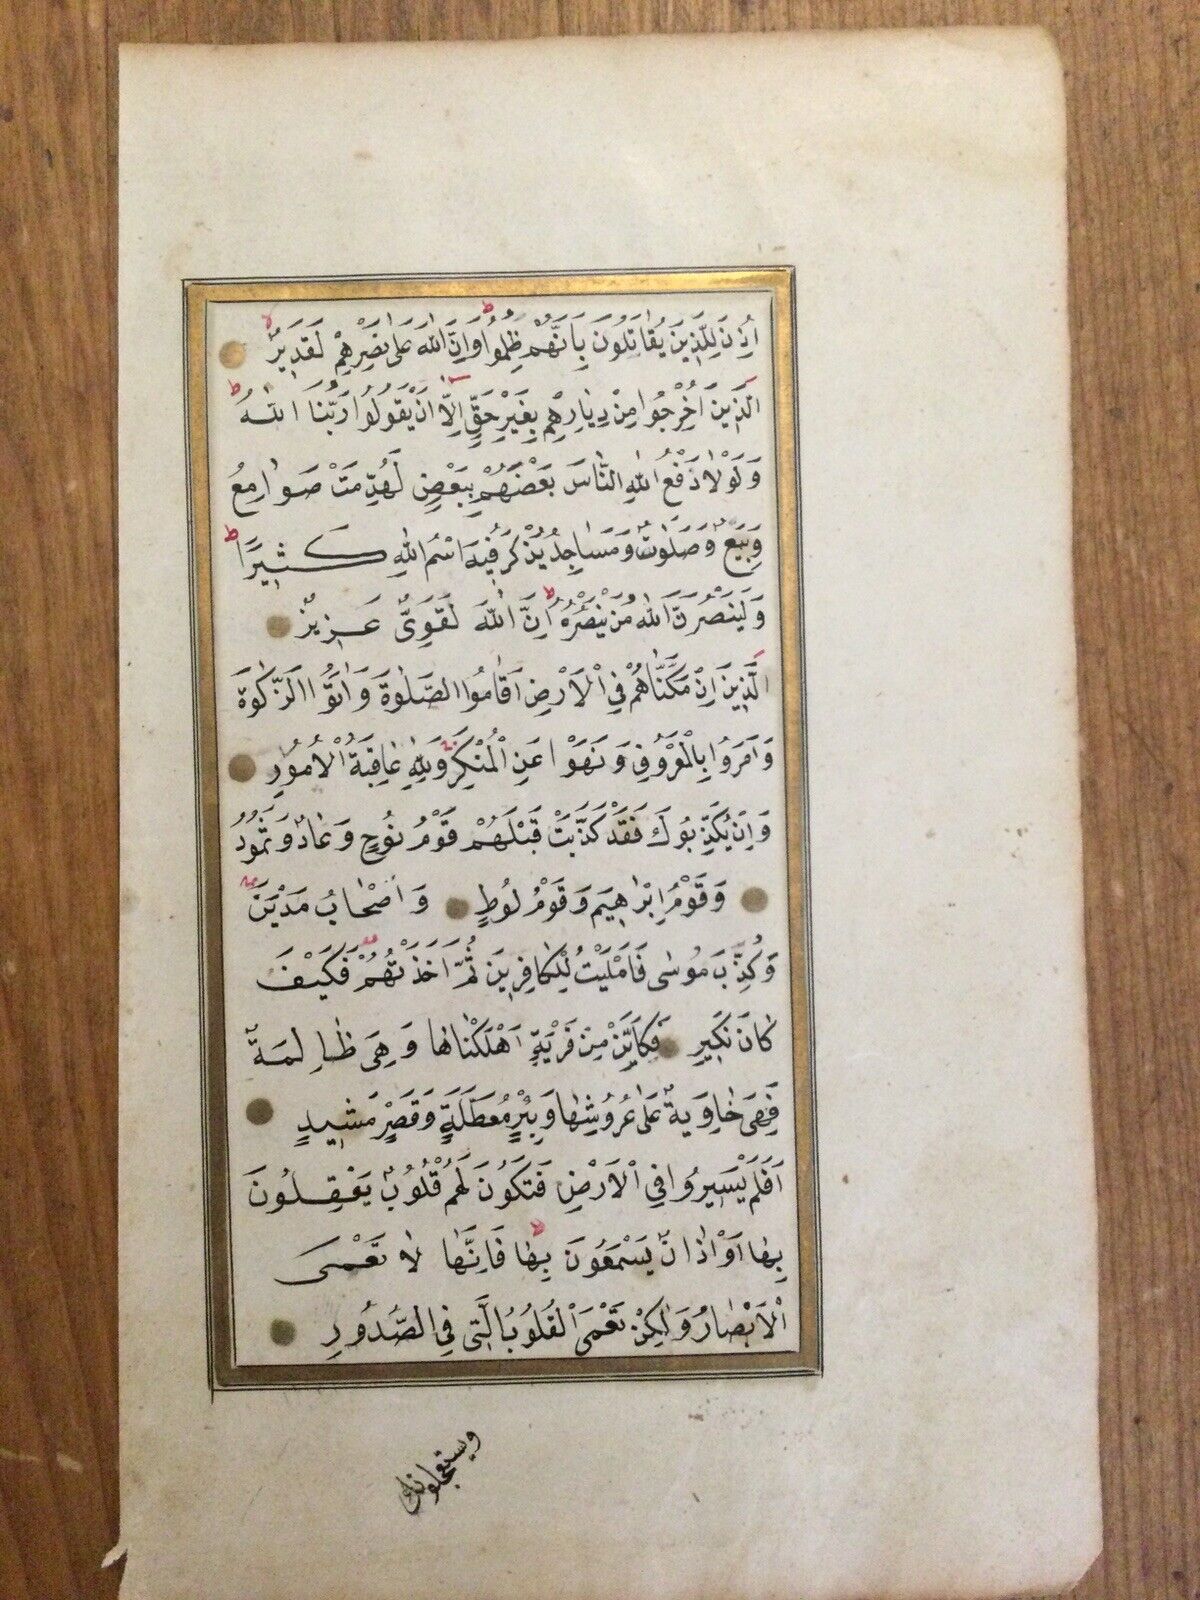 اُذِنَ لِلَّذِينَ يُقَاتَلُونَ بِاَنَّهُمْ ظُلِمُوا وَاِنَّ اللّٰهَ عَلٰى نَصْرِهِمْ لَقَدِيرٌ
اَلَّذِينَ اُخْرِجُوا مِنْ دِيَارِهِمْ بِغَيْرِ حَقٍّ اِلَّا اَنْ يَقُولُوا رَبُّنَا اللّٰهُ
وَلَوْلَا دَفْعُ اللّٰهِ النَّاسَ بَعْضَهُمْ بِبَعْضٍ لَهُدِّمَتْ صَوَامِعُ
وَبِيَعٌ وَصَلَوَاتٌ وَمَسَاجِدُ يُذْكَرُ فِيهَا اسْمُ اللّٰهِ كَثِيرًا
وَلَيَنْصُرَنَّ اللّٰهُ مَنْ يَنْصُرُهُ اِنَّ اللّٰهَ لَقَوِىٌّ عَزِيزٌ
اَلَّذِينَ اِنْ مَكَّنَّاهُمْ فِى الْاَرْضِ اَقَامُوا الصَّلٰوةَ وَاٰتَوُا الزَّكٰوةَ
وَاَمَرُوا بِالْمَعْرُوفِ وَنَهَوْا عَنِ الْمُنْكَرِ وَلِلّٰهِ عَاقِبَةُ الْاُمُورِ
وَاِنْ يُكَذِّبُوكَ فَقَدْ كَذَّبَتْ قَبْلَهُمْ قَوْمُ نُوحٍ وَعَادٌ وَثَمُودُ
وَقَوْمُ اِبْرٰهِيمَ وَقَوْمُ لُوطٍ وَاَصْحَابُ مَدْيَنَ
وَكُذِّبَ مُوسٰى فَاَمْلَيْتُ لِلْكَافِرِينَ ثُمَّ اَخَذْتُهُمْ فَكَيْفَ
كَانَ نَكِيرِ فَكَاَيِّنْ مِنْ قَرْيَةٍ اَهْلَكْنَاهَا وَهِىَ ظَالِمَةٌ
فَهِىَ خَاوِيَةٌ عَلٰى عُرُوشِهَا وَبِئْرٍ مُعَطَّلَةٍ وَقَصْرٍ مَشِيدٍ
اَفَلَمْ يَسِيرُوا فِى الْاَرْضِ فَتَكُونَ لَهُمْ قُلُوبٌ يَعْقِلُونَ
بِهَا اَوْ اٰذَانٌ يَسْمَعُونَ بِهَا فَاِنَّهَا لَا تَعْمَى
الْاَبْصَارُ وَلٰكِنْ تَعْمَى الْقُلُوبُ الَّتِى فِى الصُّدُورِ
ويستعجلونك